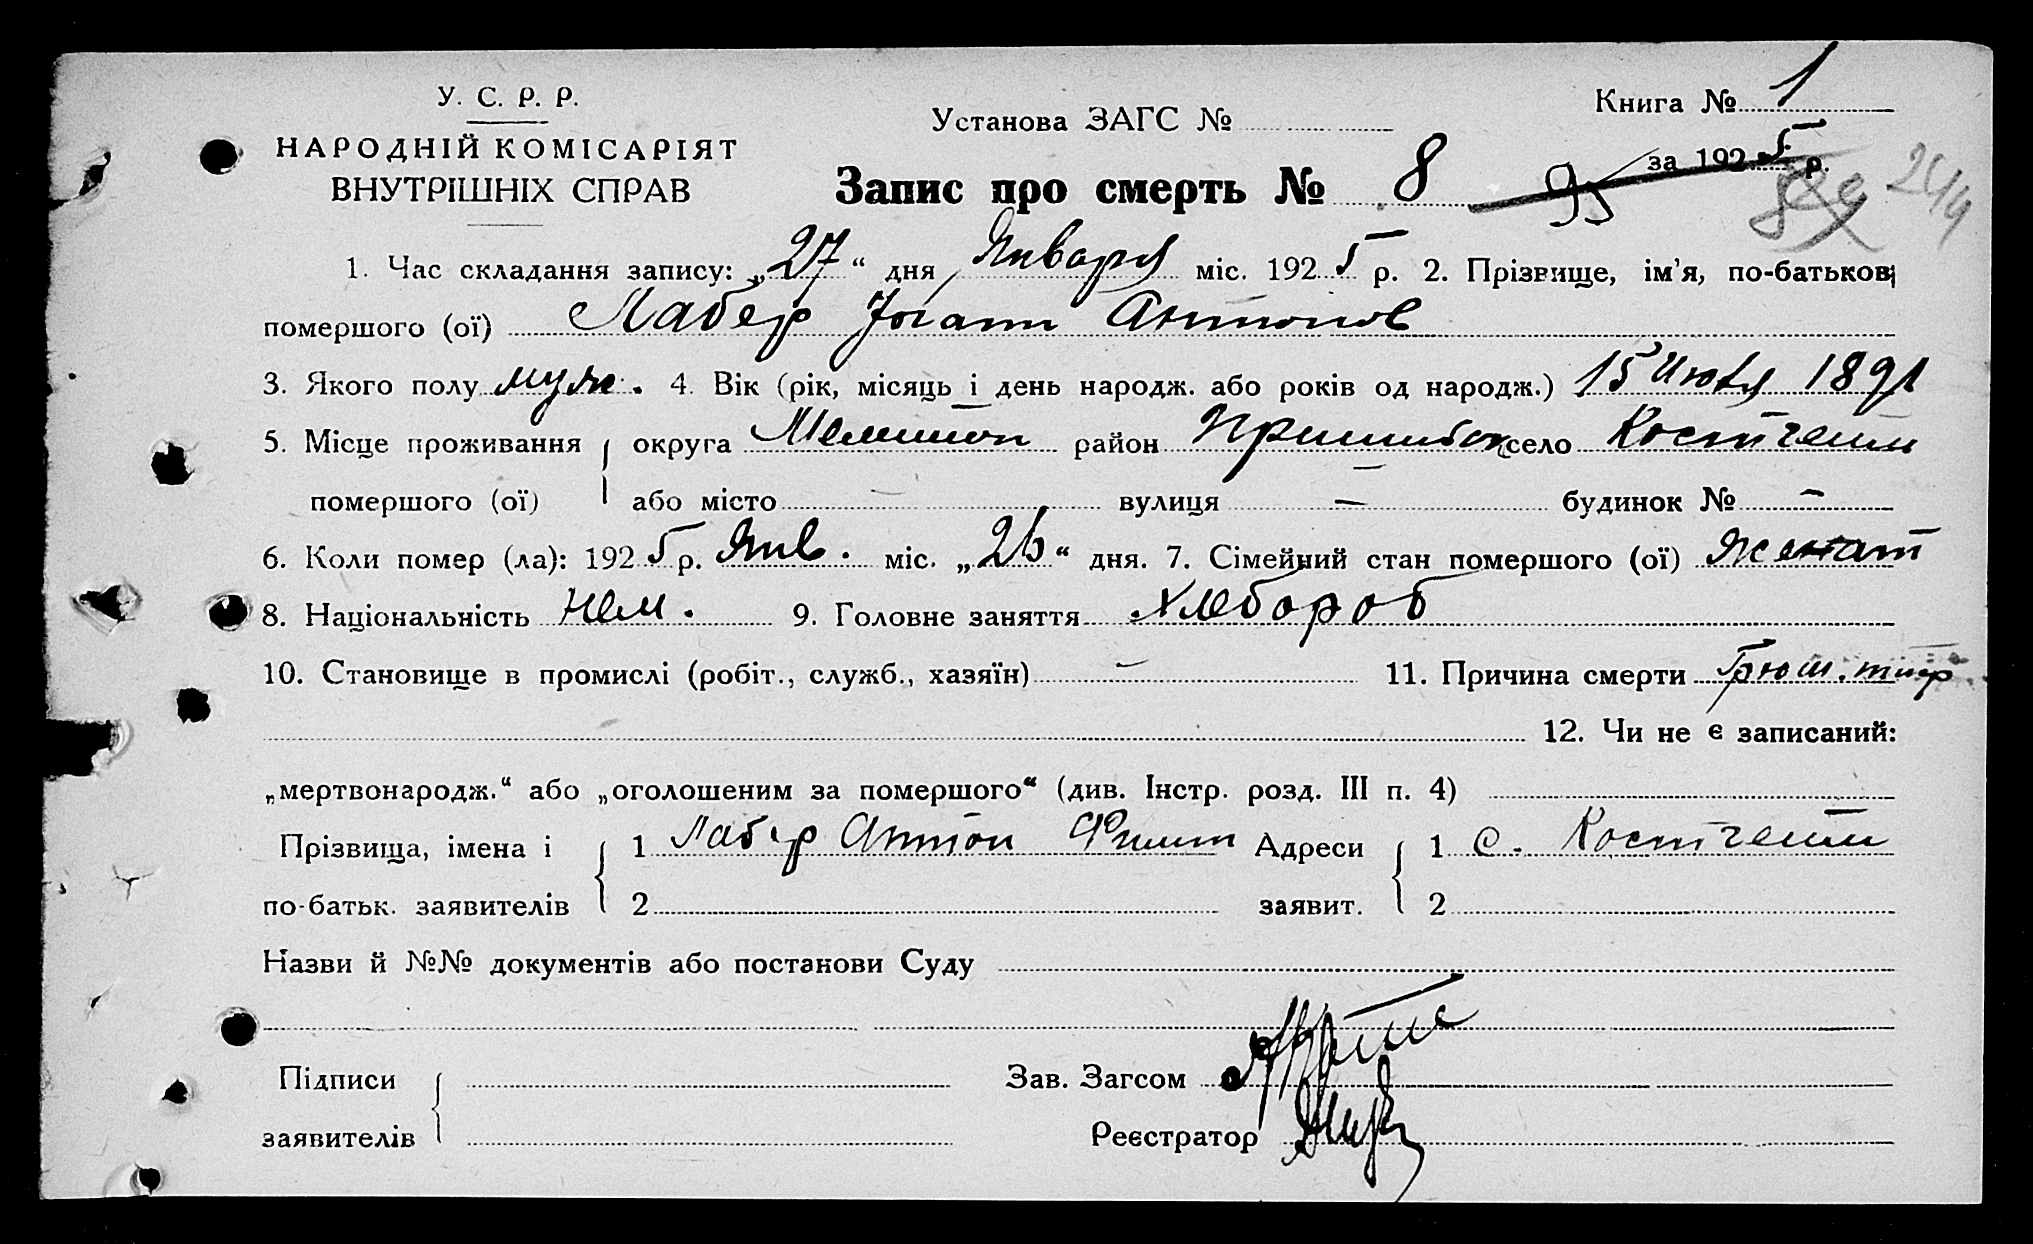 У. С. Р. Р.
НАРОДНІЙ КОМІСАРІЯТ
ВНУТРІШНІХ СПРАВ
Установа ЗАГС №
Книга № 1
за 1925 р.
Запис про смерть № 8
95
1. Час складання запису: „27“ дня Января міс. 1925 р. 2. Прізвище, ім’я, по-батькові
помершого (ої) Лабер Иогани Антонов
3. Якого полу муж. 4. Вік (рік, місяць і день народж. або років од народж.) 15 Июля 1891
5. Місце проживання округа Мелитоп район Пришибск село Костгейм
помершого (ої) або місто вулиця — будинок № —
6. Коли помер (ла): 1925 р. Янв. міс. „26“ дня. 7. Сімейний стан помершого (ої) Женат
8. Національність нем. 9. Головне заняття Хлебороб
10. Становище в промислі (робіт., служб., хазяїн) — 11. Причина смерти Брюш. тиф
12. Чи не є записаний:
„мертвонародж.“ або „оголошеним за помершого“ (див. Інстр. розд. III п. 4)
Прізвища, імена і 1 Лабер Антон Филип Адреси 1 с. Костгейм
по-батьк. заявителів 2 заявит. 2
Назви й №№ документів або постанови Суду
Підписи Зав. Загсом
заявителів Реєстратор